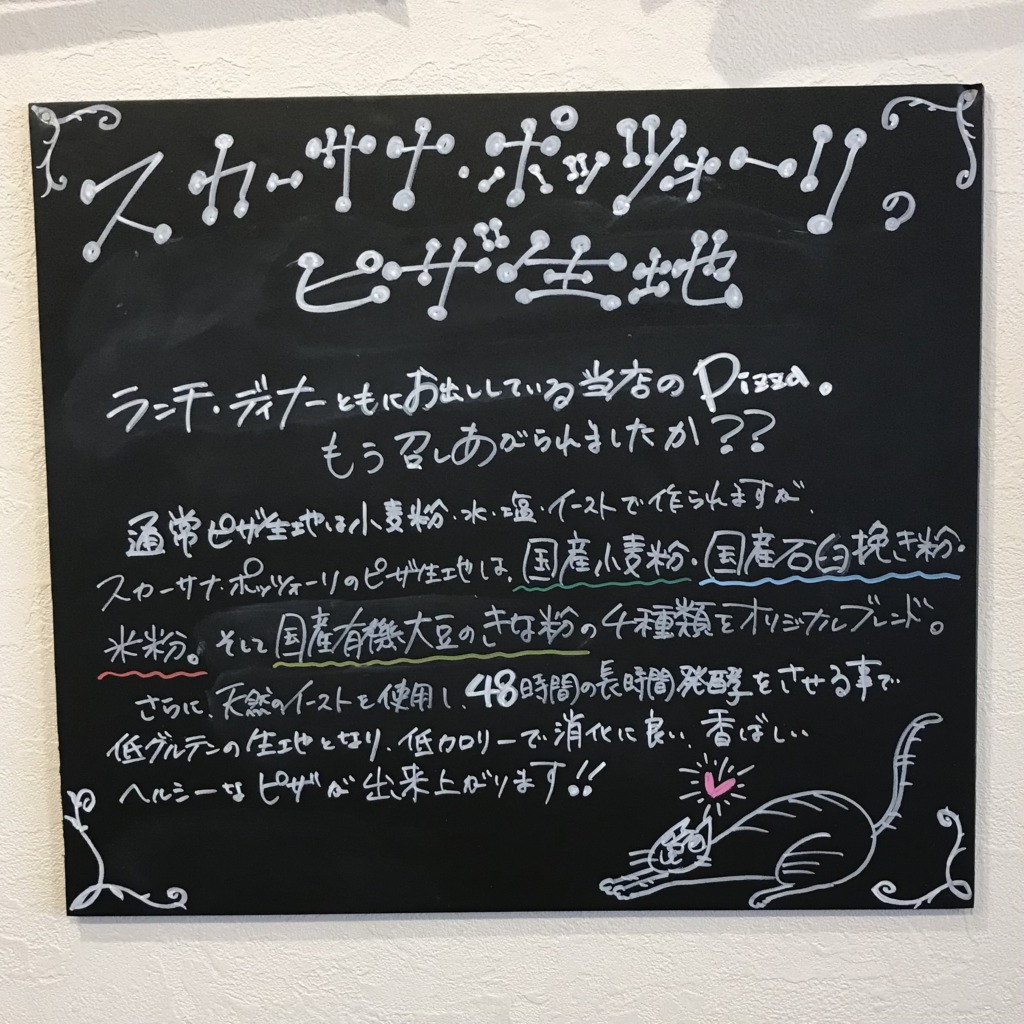 スカーサナ・ポッツォーリの
ピザ生地
ランチ・ディナーともにお出ししている当店のPizza。
もう召しあがられましたか??
通常ピザ生地は小麦粉・水・塩・イーストで作られますが、
スカーサナ・ポッツォーリのピザ生地は、国産小麦粉・国産石臼挽き粉・
米粉。そして国産有機大豆のきな粉の4種類をオリジナルブレンド。
さらに、天然のイーストを使用し、48時間の長時間発酵をさせる事で
低グルテンの生地となり、低カロリーで消化に良い、香ばしい
ヘルシーなピザが出来上がります!!